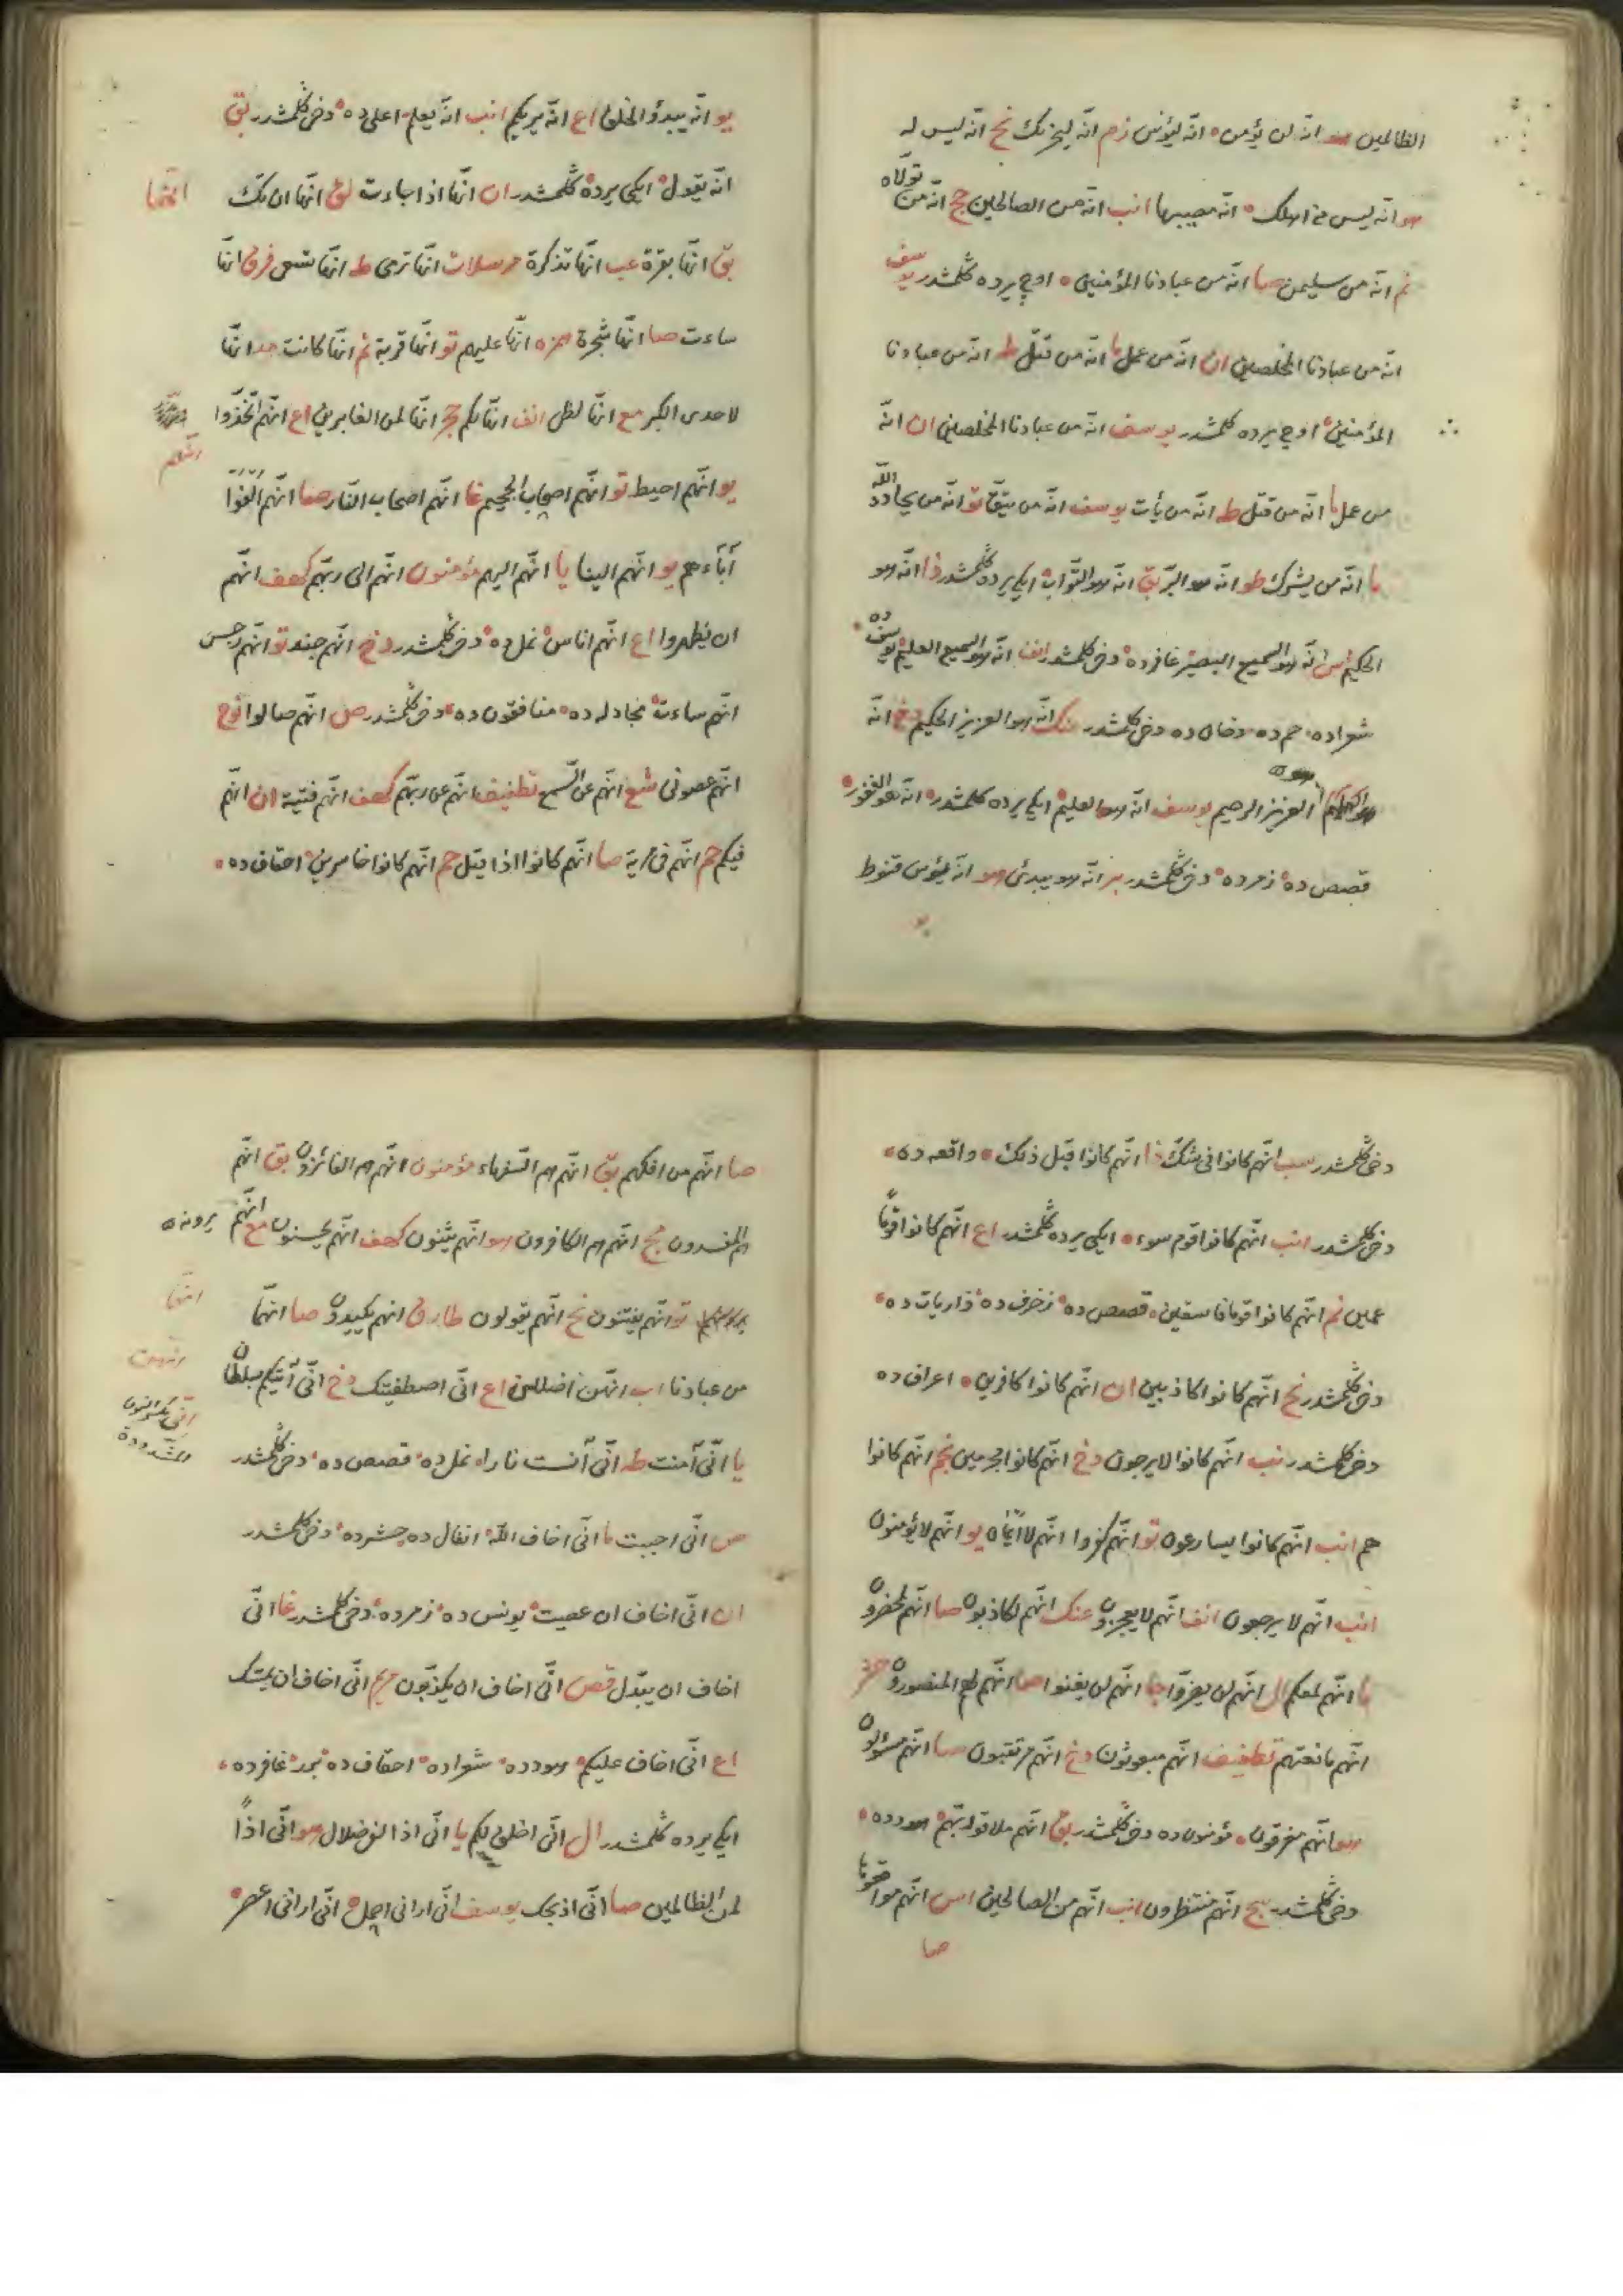 الظالمين هو انه لن يؤمن انه ليؤس زم انه ليحزنك نح انه ليس له
هو انه ليس من اهلك انه مصيبها انب انه من الصالحين حج انه من تولاه
نم انه من سليمن صا انه من عبادنا المؤمنين اوچ يرده گلمشدر يوسف
انه من عبادنا المخلصين ان انه من عمل ما انه من قتل ط انه من عبادنا
المؤمنين اوچ يرده كلمشدر يوسف انه من عبادنا المخلصين ان انه
من عمل ما انه من قتل طه انه من يأت يوسف انه من يتق تو انه من يحادد الله
ما انه من يشرك طو انه هو البر بق انه هو التواب ايكى يرده گلمشدر ذا انه هو
الحكيم اس انه هو السميع البصير غافرده دخى كلمشدر انف انه هو السميع العليم يوسف ده
شعراده حم ده دخان ده دخى كلمشدر عنك انه هو العزيز الحكيم دخ انه
العزيز الرحيم يوسف انه هو العليم ايكى يرده كلمشدر انه هو الغفور
قصص ده زمرده دخى گلمشدر بر انه هو يبدئ هو انه ليؤس قنوط
يو
يو انه يبدؤ الخلق اع انه يريكم انب انه يعلم اعلى ده دخى گلمشدر بق
انه يقول ايكى يرده گلمشدر ان انها اذا جاءت لق انها ان تك
انها
بق انها بقرة عب انها تذكرة مرسلات انها ترمى طه انها تسعى فرق انها
ساءت صا انها شجرة همزه انها عليهم تو انها قربة نم انها كانت مد انها
لاحدى الكبر مع انها لظى انف انها لكم حج انها لمن الغابرين اع انهم اتخذوا
انهم
يو انهم احيط تو انهم اصحاب الجحيم غا انهم اصحاب النار صا انهم الفوا
آباءهم يو انهم الينا يا انهم اليهم مؤمنون انهم الى ربهم كهف انهم
ان يظهروا اع انهم اناس نمل ده دخى گلمشدر دخ انهم جند تو انهم رجس
انهم ساءت مجادله ده منافقون ده دخى گلمشدر ص انهم صالوا نوح
انهم عصونى شع انهم عن السمع تطفيف انهم عن ربهم كهف انهم فتية ان انهم
فيكم حم انهم فى مرية صا انهم كانوا اذا قيل حم انهم كانوا خاسرين احقاف ده
دخى گلمشدر سب انهم كانوا فى شك ذا انهم كانوا قبل ذلك واقعه ده
دخى گلمشدر انب انهم كانوا قوم سوء ايكى يرده گلمشدر اع انهم كانوا قوما
عمين نم انهم كانوا قوما فاسقين قصص ده زخرف ده ذاريات ده
دخى گلمشدر نح انهم كانوا كاذبين ان انهم كانوا كافرين اعراف ده
دخى كلمشدر نب انهم كانوا لا يرجون دخ انهم كانوا مجرمين نجم انهم كانوا
هم انب انهم كانوا يسارعون تو انهم كفروا انهم لا ايمان يو انهم لا يؤمنون
انب انهم لا يرجعون انف انهم لا يعجزون عنك انهم لكاذبون صا انهم لمحضرون
ما انهم لمعكم ال انهم لن يضروا جا انهم لن يغنوا صا انهم لهم المنصورون حشر
انهم مانعتهم تطفيف انهم مبعوثون دخ انهم مرتقبون صا انهم مسؤلون
هو انهم مغرقون مؤمنون ده دخى گلمشدر بق انهم ملاقوا ربهم هودده
دخى گلمشدر سج انهم منتظرون انب انهم من الصالحين
صا
صا انهم من افكهم بق انهم هم السفهاء مؤمنون انهم هم الفائزون بق انهم
هم المفسدون نح انهم هم الكافرون هو انهم يثنون كهف انهم يحسنون مع انهم يرونه
تو انهم يفتنون نح انهم يقولون طارق انهم يكيدون صا انهما
انهما
من عبادنا اب انهن اضللن اع انى اصطفيتك دخ انى آتيكم بسلطان
يا انى آمنت طه انى آنست نارا نمل ده قصص ده دخى گلمشدر
ص انى احببت ما انى اخاف الله انفال ده حشرده دخى كلمشدر
ان انى اخاف ان عصيت يونس ده زمرده دخى كلمشدر غا انى
اخاف ان يبدل قص انى اخاف ان يكذبون مريم انى اخاف ان يمسك
اع انى اخاف عليكم هودده شعراده احقاف ده غافرده
ايكى يرده گلمشدر ال انى اخلق لكم يا انى اذا لفى ضلال هو انى اذا
لمن الظالمين صا انى اذبحك يوسف انى ارانى احمل انى ارانى اعصر